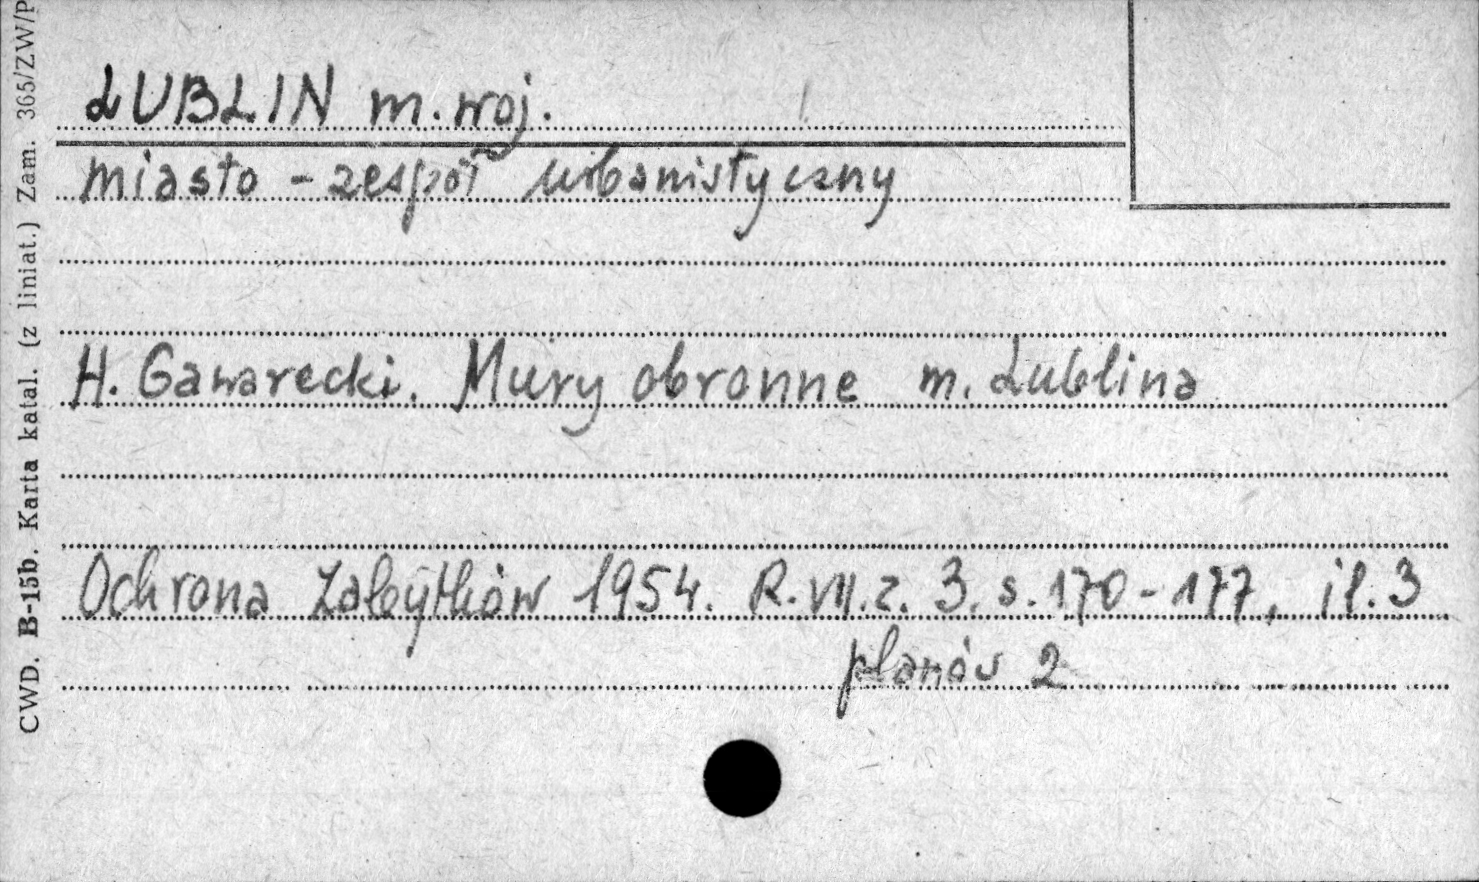 LUBLIN m. woj.
miasto - zespół urbanistyczny
H. Gawarecki. Mury obronne m. Lublina
Ochrona Zabytków 1954. R. VII. z. 3. s. 170-177, il. 3
planów 2
CWD. B-15b. Karta katal. (z liniat.) Zam. 365/ZW/P